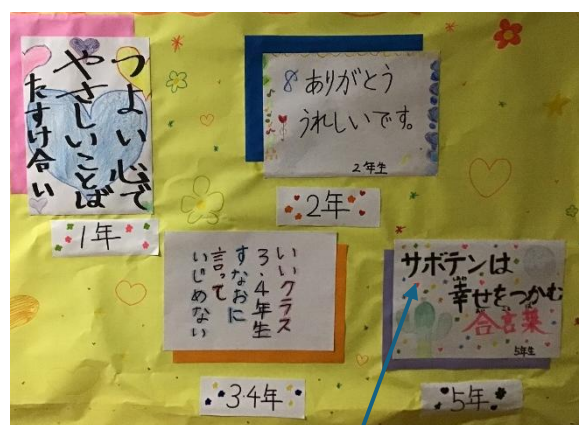 つよい心で
やさしいことば
たすけ合い
1年
ありがとう
うれしいです。
2年生
2年
いいクラス
3・4年生
すなおに
言って
いじめない
3·4年
サボテンは
幸せをつかむ
合言葉
5年生
5年